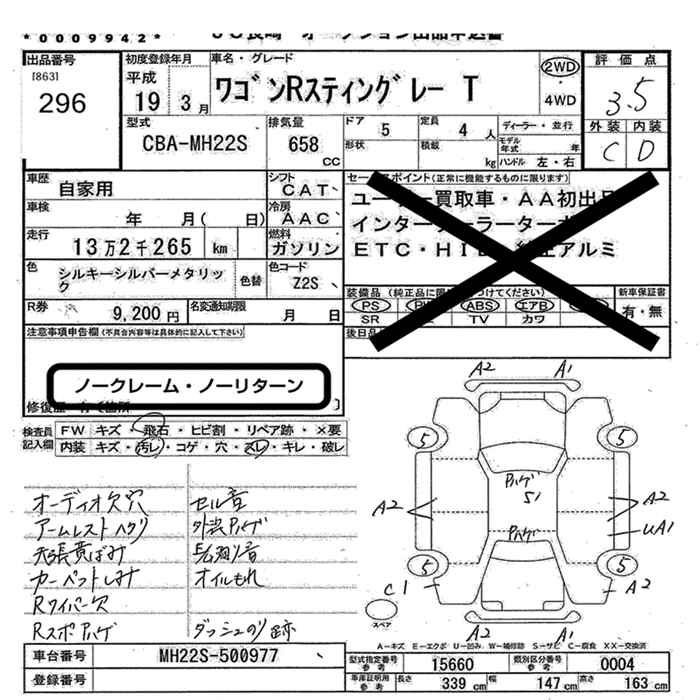 *0009942*
出品番号
[863]
296
初度登録年月
平成
19 3月
車名・グレード
ワゴンRスティングレー T
2WD
・
4WD
評価点
3.5
外装 内装
C D
型式
CBA-MH22S
排気量
658
CC
ドア
5
形状
定員
4 人
積載
kg
ディーラー・並行
モデル年式 年
ハンドル 左・右
車歴
自家用
シフト
CAT
車検
年 月( 日)
冷房
AAC
走行
13万2千265 km
燃料
ガソリン
色
シルキーシルバーメタリック
色替
色コード
Z2S
R券
9,200円
名変通知期限
月 日
セールスポイント(正常に機能するものに限ります)
ユーザー買取車・AA初出品
インタークーラーターボ
ETC・HID・純正アルミ
装備品(純正品に限
つけてください)
PS
ABS
エアB
SR
TV
カワ
新車保証書
有・無
後日品
注意事項申告欄(不具合内容等は具体的に記入して下さい)
ノークレーム・ノーリターン
修復歴
検査員記入欄
FW キズ・飛石・ヒビ割・リペア跡・×要
内装 キズ・汚レ・コゲ・穴・スレ・キレ・破レ
オーディオ欠穴
セル音
アームレストハゲ
外装ハゲ
天張黄ばみ
カーペットしみ
オイルもれ
Rワイパー欠
Rスポハゲ
ダッシュのり跡
A2 A1
5 5
ハゲ
51
A2
ハゲ
A2
UA1
5 5
C1
A2
スペア
A2 A1
A-キズ E-エクボ U-凹み W-補修跡 S-サビ C-腐食 XX-交換済
車台番号
MH22S-500977
登録番号
型式指定番号
参考
15660
類別区分番号
参考
0004
車庫証明用
参考
長さ
339 cm
幅
147 cm
高さ
163 cm